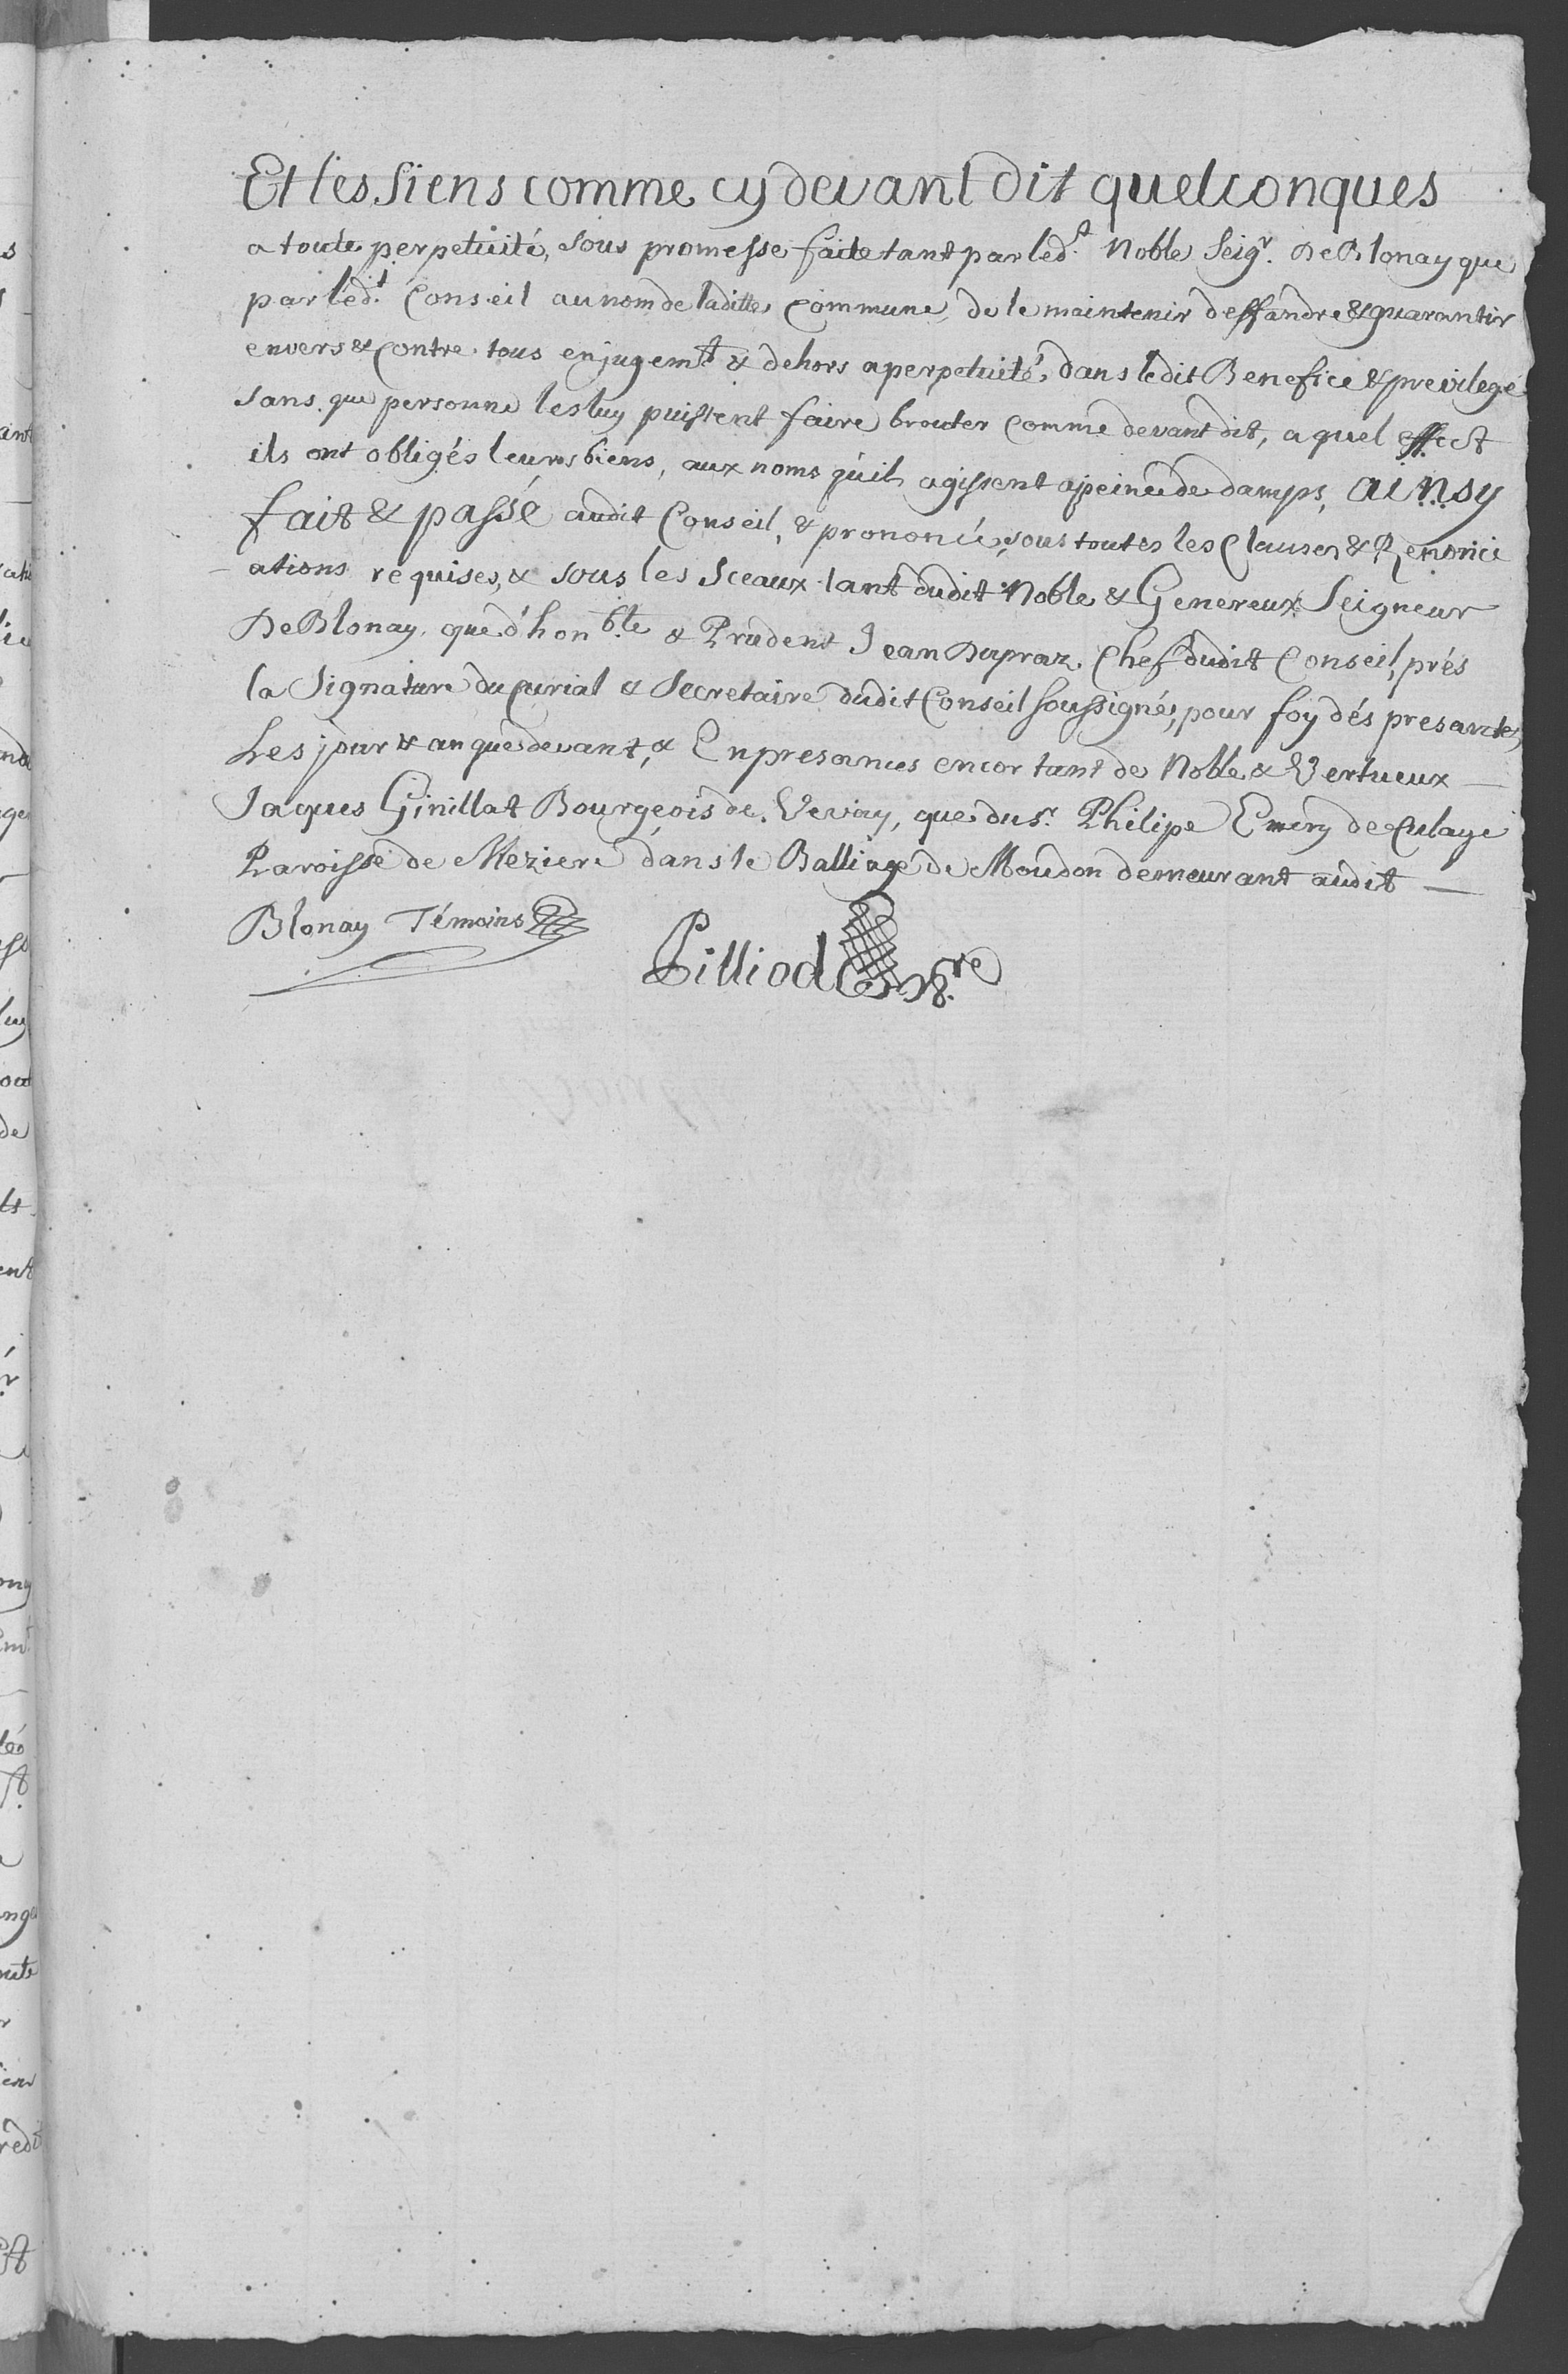 Et les Siens comme cy devant dit quelconques
a toute perpetuité, sous promesse faite tant par led.t Noble Seig.r De Blonay que
par led.t Conseil au nom de laditte Commune, de le maintenir deffandre & guarantir
envers & contre tous en jugem.t & dehors a perpetuité, dans ledit Benefice & previlegé
sans que personne les luy puissent faire brouter comme devant dit, a quel effect
ils ont obligés leurs biens, aux noms qu'ils agissent a peine de damps, ainsy
fait & passé audit Conseil, & prononcé, sous toutes les Clauses & Renonci
ations requises, & sous les Sceaux tant dudit Noble & Genereux Seigneur
De Blonay, que d'hon.ble & Prudent Jean Dupraz, Chef dudit Conseil, prés
la Signature du Curial & Secretaire dudit Conseil soussigné, pour foy dés presantes,
Les jour & an que devant, & En presances encor tant de Noble & Vertueux
Jaques Ginillat Bourgeois de Vevay, que du s.r Philipe Emery de Culaye
Paroisse de Meziere dans le Balliage de Moudon demeurant audit
Blonay Témoins
Pilliod